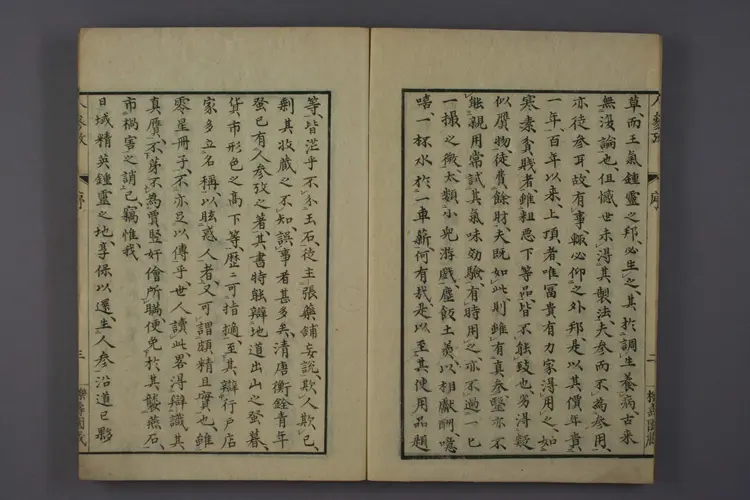 草、而王氣鍾靈之邦、必生之、其於調生養病、古來
無沒論也、但憾世未得其製法、夫參而不為參用、
亦徒參耳、故有事輙必仰之外邦、是以其價年貴
一年、百年以來上頂者、唯冨貴有力家得用之、如
寒素貧賤者、雖粗惡下等品、皆不能致也、多得疑
似贋物、徒費餘財、夫既如此、則雖有真參、毉亦不
能親用嘗試其氣味効驗、有時用之、亦不過一匕
一撮之微、太類小兒游戲、塵飯土羮、以相獻酬、噫
嘻、一杯水於一車薪、何有哉、是以至其使用品題
等、皆茫乎不分玉石、徒主張藥鋪妄說、欺人欺己、
剩其收藏之不知、誤事者甚多矣、清唐衡銓青年
蚤已有人參攷之著、其書特能辯地道出山之蚤暮、
貨市形色之高下等、歷々可指擿、至其辯行戶店
家多立名稱、以眩惑人者、又可謂頗精且實也、雖
零星冊子、不亦足以傳乎、世人讀此、畧得辯識其
真贋、不苐不為賈豎奸儈所瞞、便免於其襲燕石、
市禍害之誚已、竊惟我
日域精英鍾靈之地、享保以還、生人參、沿道已夥
人參攷
序
二
人參攷
序
三